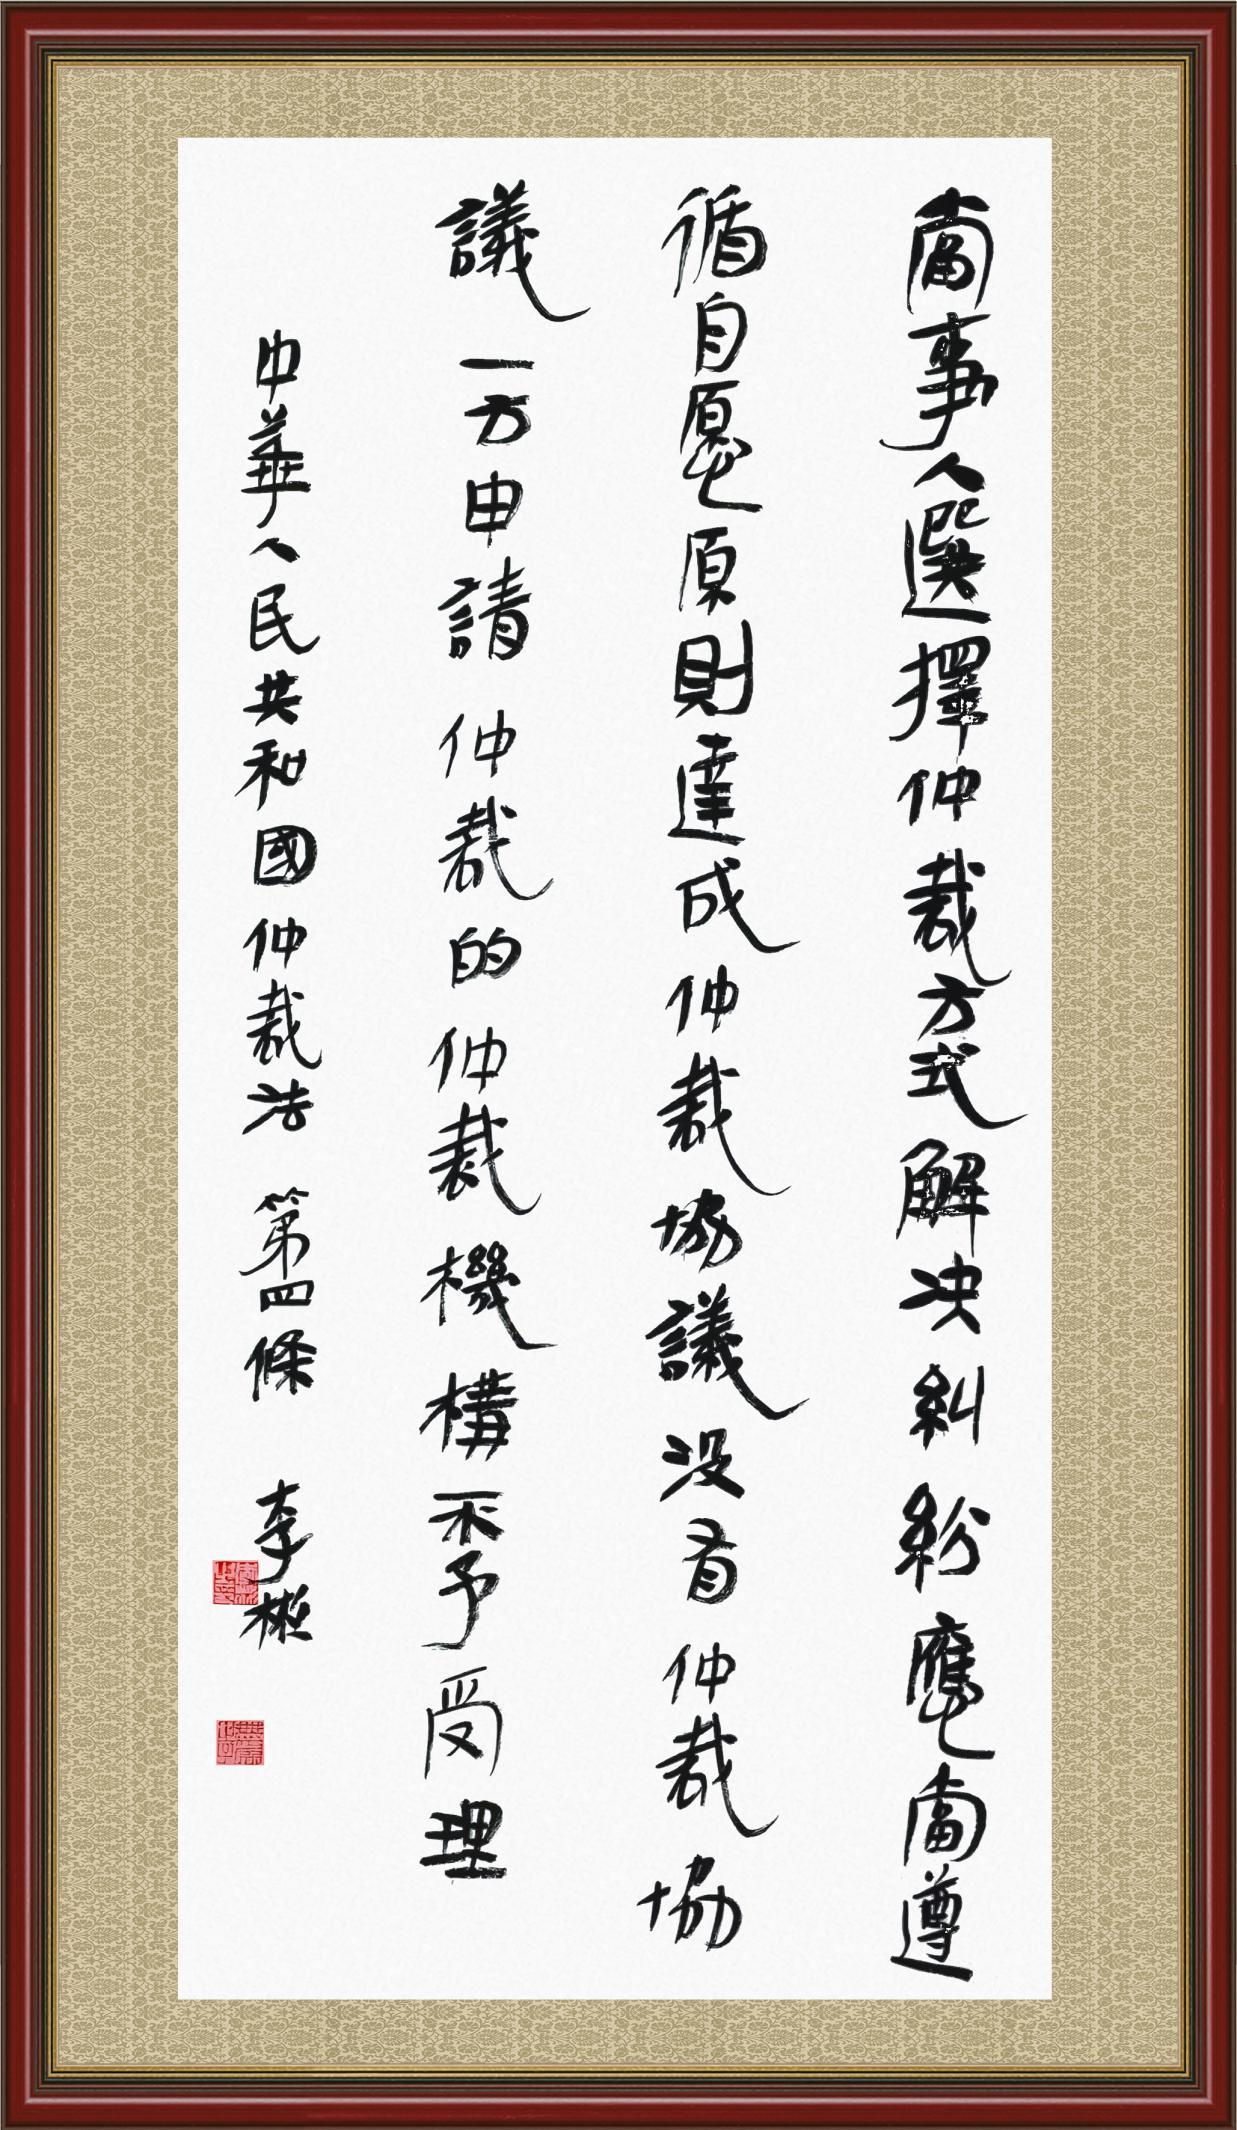 當事人選擇仲裁方式解决糾紛應當遵
循自愿原則達成仲裁協議没有仲裁協
議一方申請仲裁的仲裁機構不予受理
中華人民共和國仲裁法 第四條 李彬